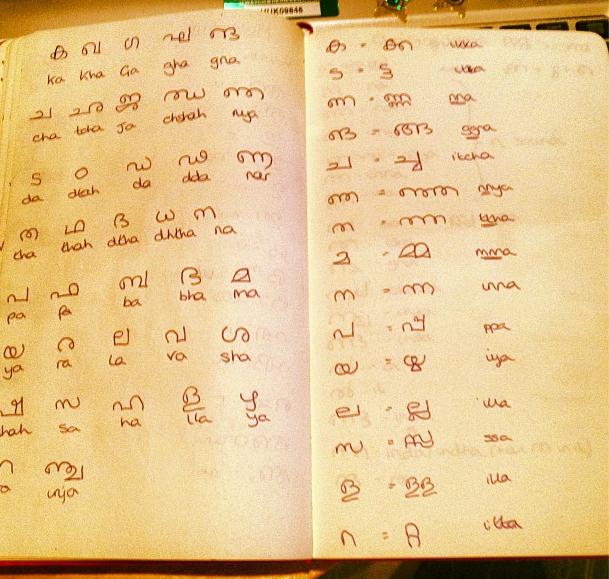 UK09846
ക ഖ ഗ ഘ ങ
ka kha Ga gha gna
ച ഛ ജ ഝ ഞ
cha tcha Ja chshah nya
ട ഠ ഡ ഢ ണ
da dtah da dda nar
ത ഥ ദ ധ ന
tha thah dtha dhtha na
പ ഫ ബ ഭ മ
pa fa ba bha ma
യ ര ല വ ശ
ya ra la va sha
ഷ സ ഹ ള ഴ
shah sa ha lla ya
റ ഞ്ച
a inja
ക = ക്ക ukka
ട = ട്ട
ണ = ണ്ണ nna
ങ = ങ്ങ
ച = ച്ച itcha
ഞ = ഞ്ഞ nnya
ത = ത്ത ttha
മ = മ്മ mma
ന = ന്ന unna
പ = പ്പ ppa
യ = യ്യ iya
ല = ല്ല illa
സ = സ്സ ssa
ള = ള്ള illa
റ = റ്റ itta